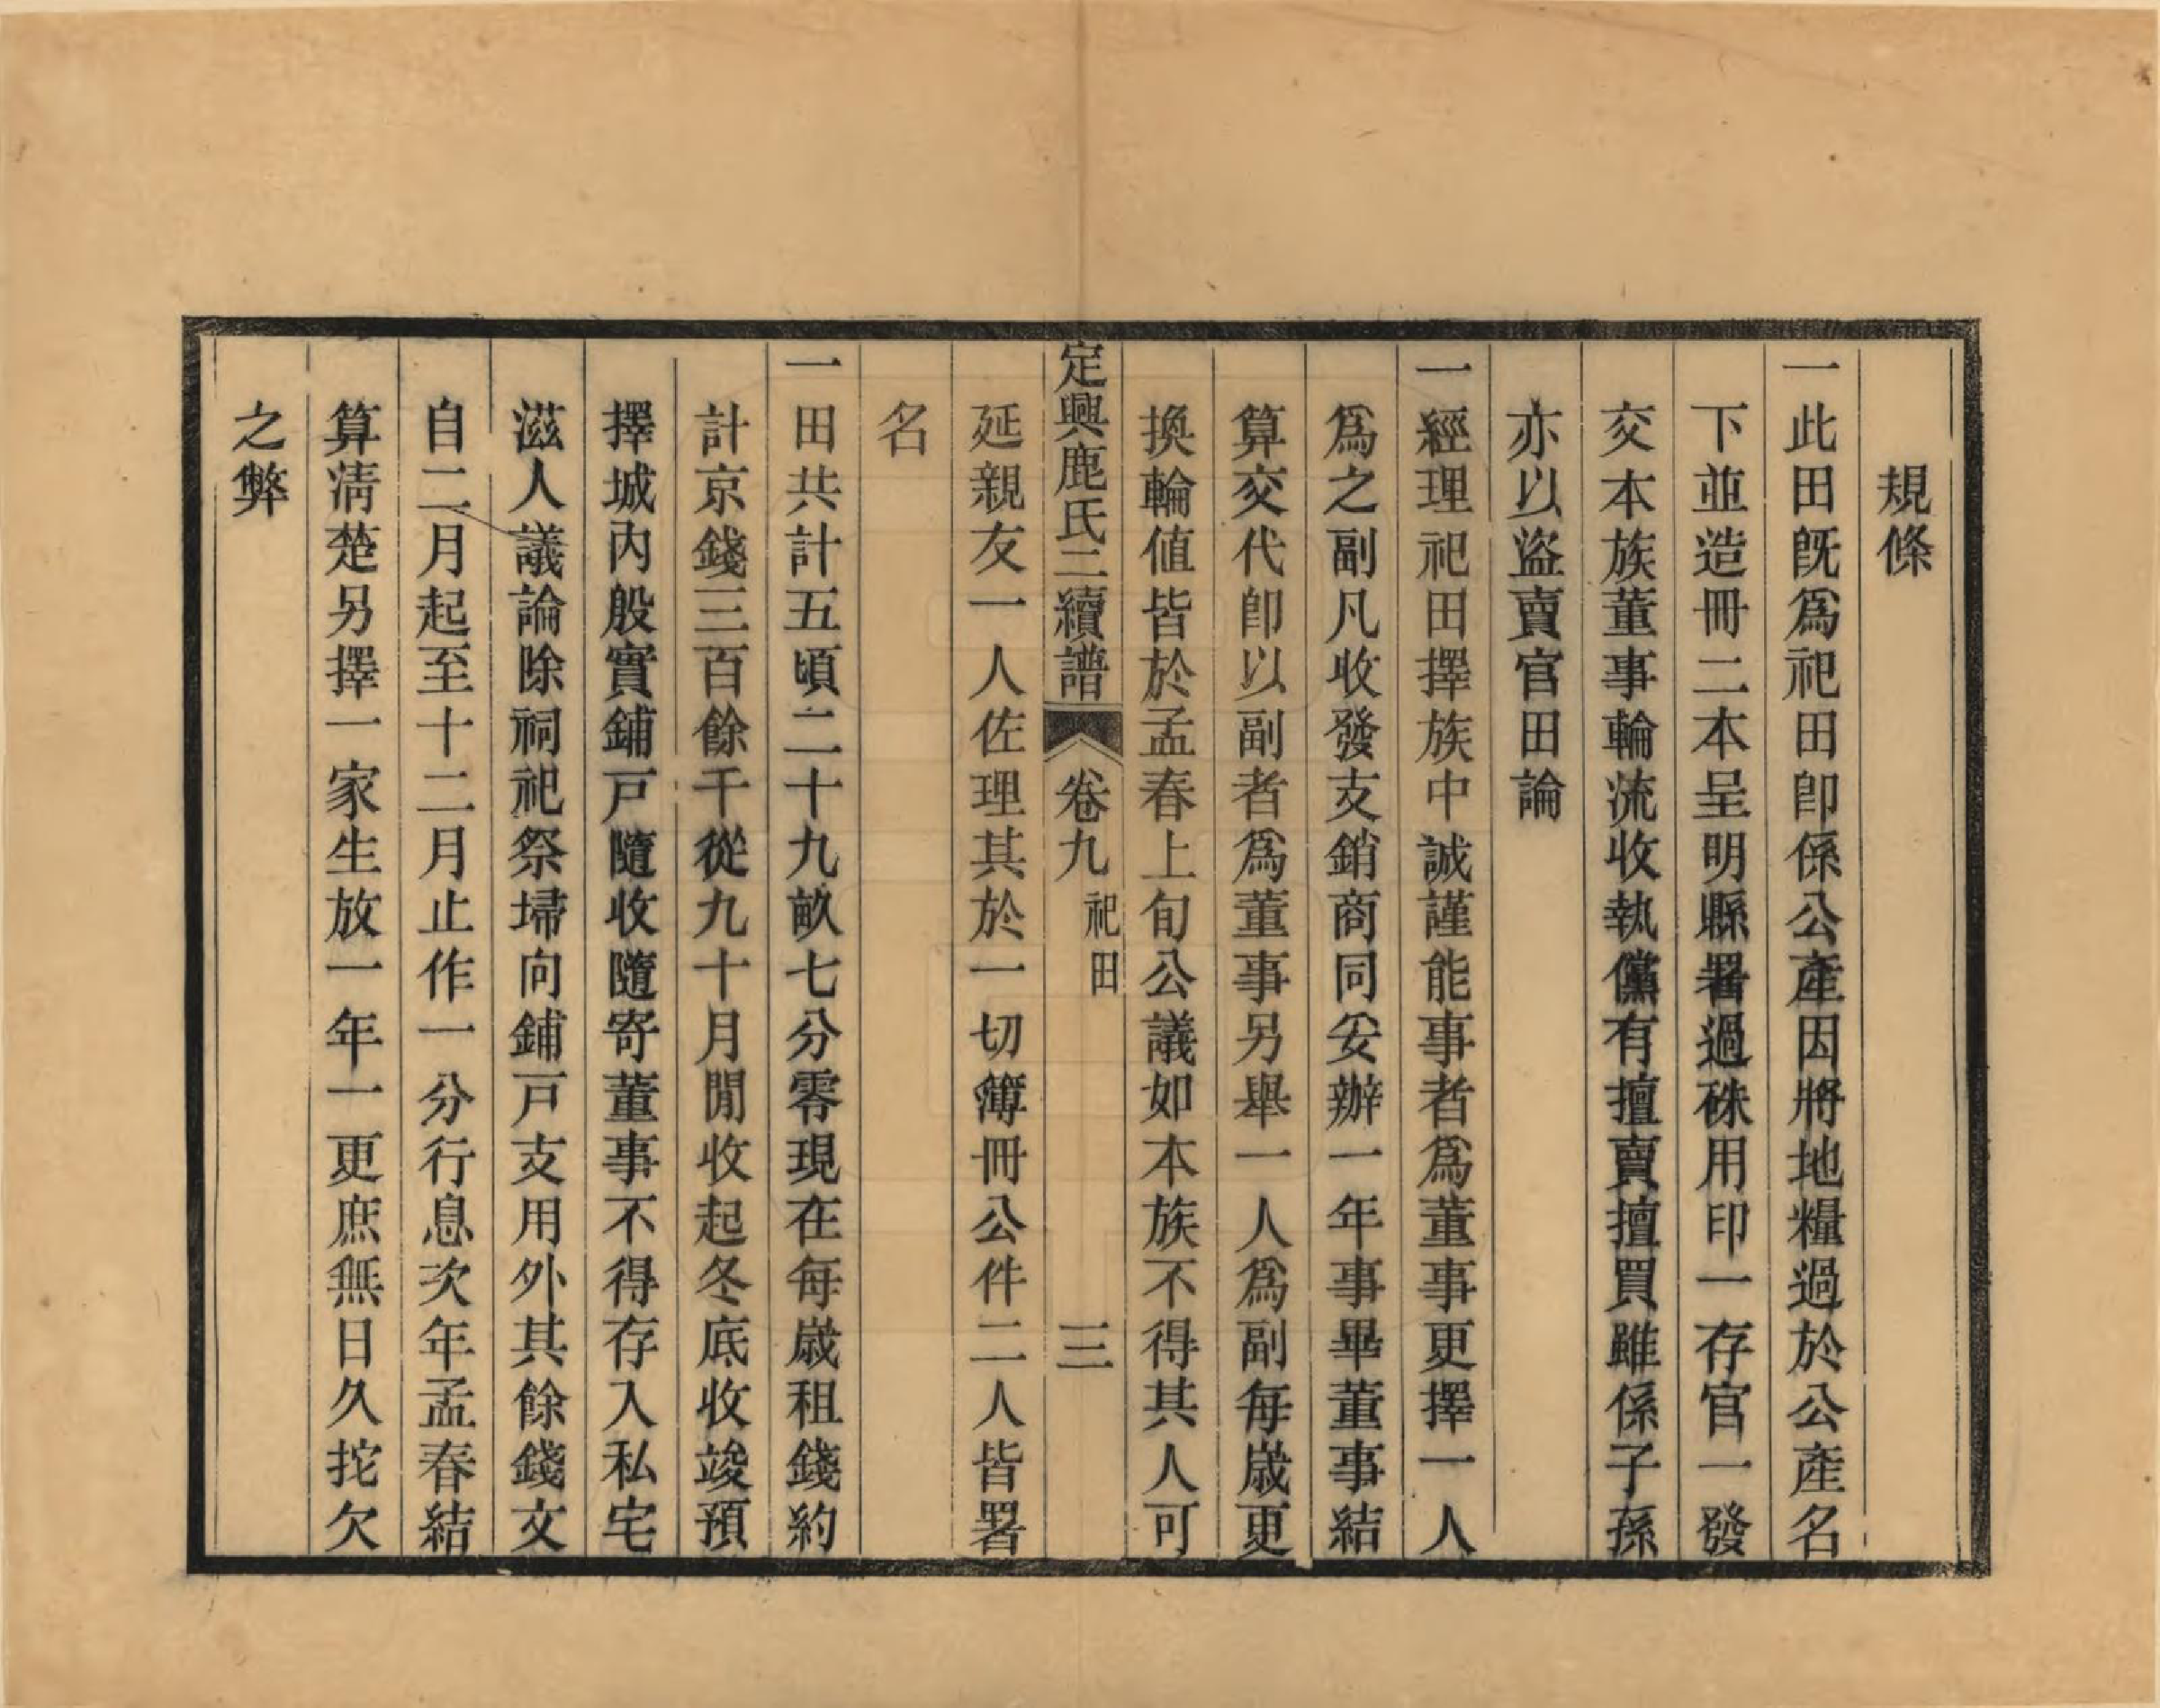 規條
一此田旣爲祀田卽係公產因將地糧過於公產名
下並造冊二本呈明縣署過硃用印一存官一發
交本族董事輪流收執儻有擅賣擅買雖係子孫
亦以盜賣官田論
一經理祀田擇族中誠謹能事者爲董事更擇一人
爲之副凡收發支銷商同妥辦一年事畢董事結
算交代卽以副者爲董事另舉一人爲副每歲更
換輪値皆於孟春上旬公議如本族不得其人可
定興鹿氏二續譜 卷九 祀田 三
延親友一人佐理其於一切簿冊公件二人皆署
名
一田共計五頃二十九畝七分零現在每歲租錢約
計京錢三百餘千從九十月閒收起冬底收竣預
擇城內殷實鋪戸隨收隨寄董事不得存入私宅
滋人議論除祠祀祭埽向鋪戸支用外其餘錢文
自二月起至十二月止作一分行息次年孟春結
算清楚另擇一家生放一年一更庶無日久挓欠
之弊